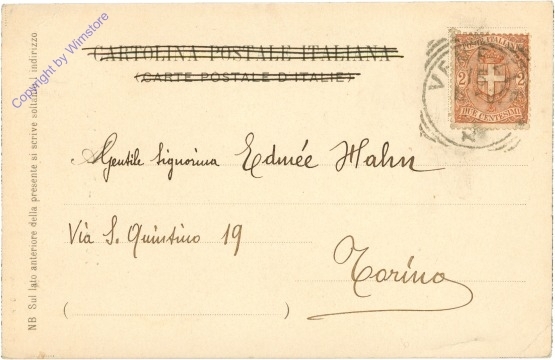 CARTOLINA POSTALE ITALIANA
(CARTE POSTALE D'ITALIE)
POSTE ITALIANE
2 2
DUE CENTESIMI
Gentile Signorina Edmée Hahn
Via S. Quintino 19
Torino
NB Sul lato anteriore della presente si scrive soltanto l'indirizzo
Copyright by Wimstore